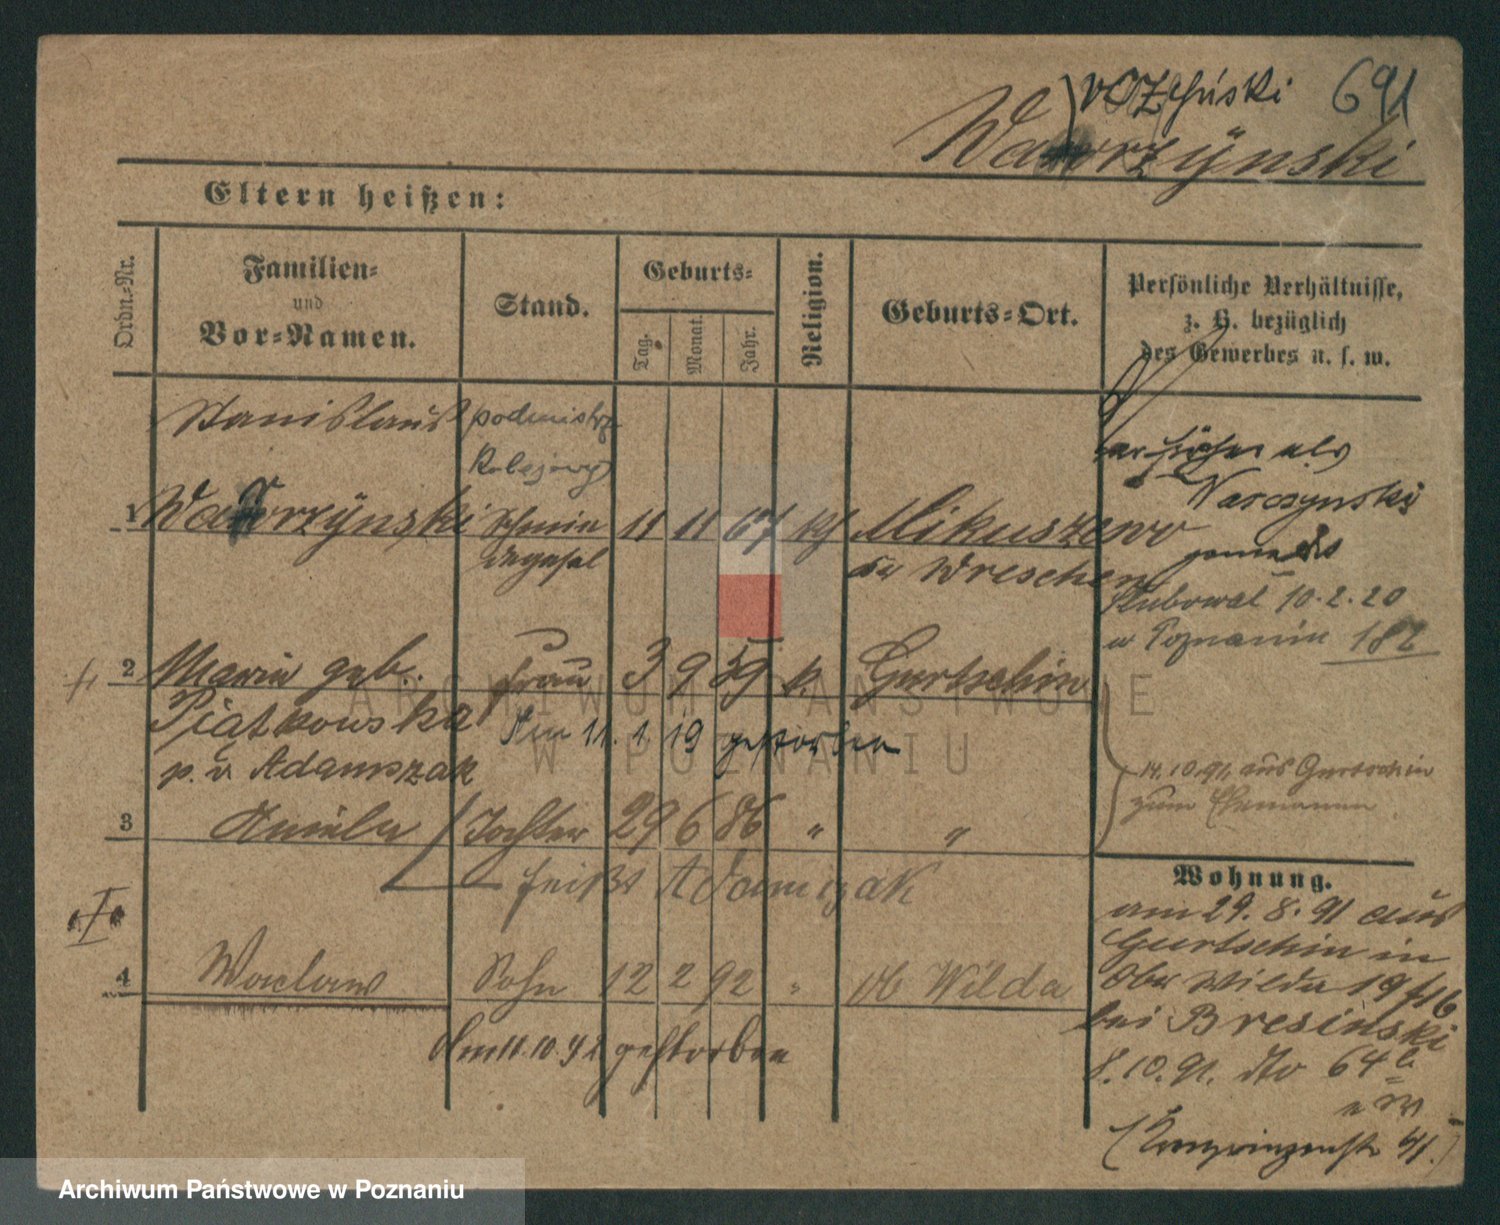 691
Wawrzÿnski
Eltern heißen:
Ordn.-Nr.
Familien-
und
Vor-Namen.
Stand.
Geburts-
Tag.
Monat.
Jahr.
Religion.
Geburts-Ort.
Persönliche Verhältnisse,
z. B. bezüglich
des Gewerbes u. s. w.
Stanislaus podmistrz
kolejowy
war früher als
Narczynski
1 Wawrzÿnski 11 11 67 kf Mikuszewo
Wreschen
ślubował 10.2.20
w Poznaniu 182
2 Maria geb. Frau 3 9 59 k. Gurtschin
Piatkowska
Am 11.1.19 gestorben
p. v. Adamszak
14.10.91. aus Gurtschin
zum Ehemann
3 Aniela Tochter 29 6 86 " "
heißt Adamczak
Wohnung.
am 29.8.91 aus
Gurtschin in
Ober Wilda 19
bei Bresinski
4 Waclaw Sohn 12 2 92 " Ob Wilda
Am 11.10.92 gestorben
8.10.91. dto 64
(Kronprinzenstr
ARCHIWUM PAŃSTWOWE
W POZNANIU
Archiwum Państwowe w Poznaniu